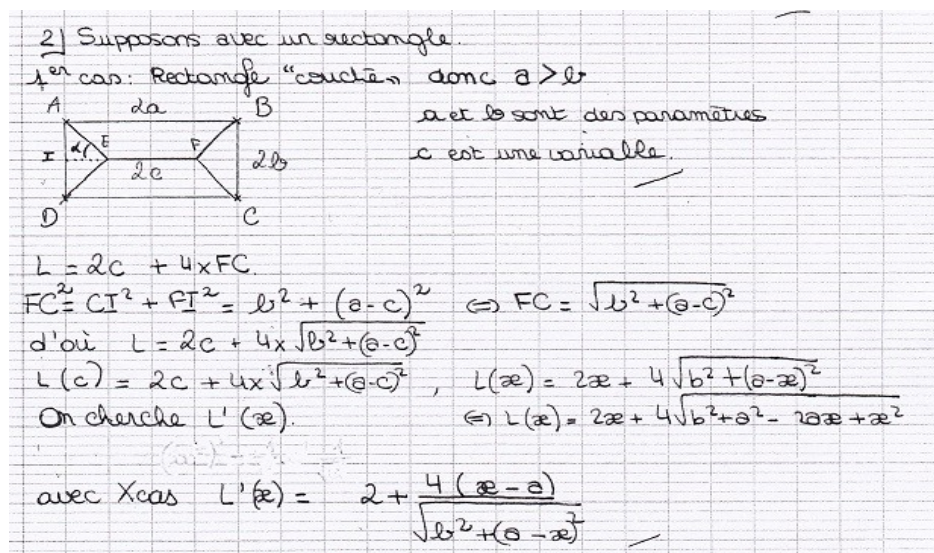 2) Supposons avec un rectangle.
1er cas : Rectangle "couché" donc a > b
A 2a B
a et b sont des paramètres
I α E F 2b
c est une variable.
2c
D C
L = 2c + 4 x FC.
FC² = CI² + FI² = b² + (a - c)² ⇔ FC = √(b² + (a-c)²)
d'où L = 2c + 4 x √(b² + (a-c)²)
L(c) = 2c + 4 x √(b² + (a-c)²) , L(x) = 2x + 4√(b² + (a-x)²)
On cherche L'(x). ⇔ L(x) = 2x + 4√(b² + a² - 2ax + x²)
avec Xcas L'(x) = 2 + 4(x - a) / √(b² + (a - x)²)